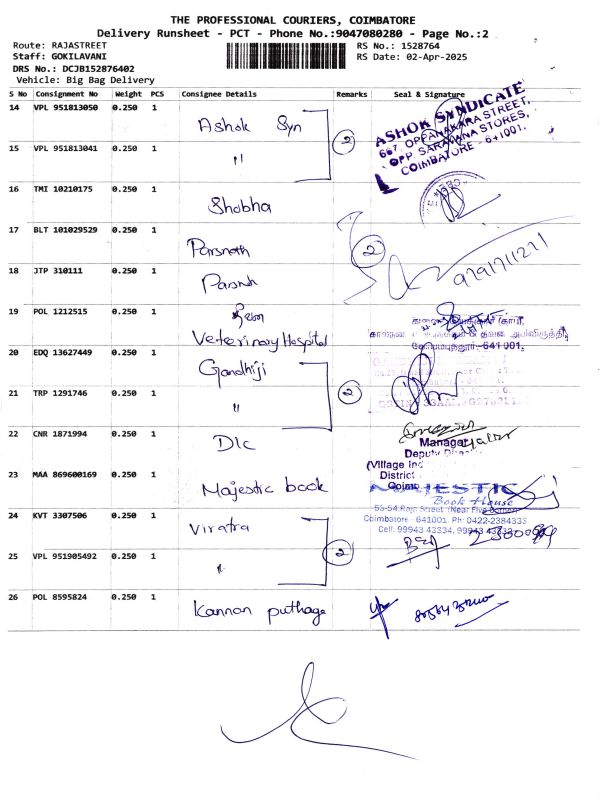 THE PROFESSIONAL COURIERS, COIMBATORE
Delivery Runsheet - PCT - Phone No.:9047080280 - Page No.:2
Route: RAJASTREET
RS No.: 1528764
Staff: GOKILAVANI
RS Date: 02-Apr-2025
DRS No.: DCJB152876402
Vehicle: Big Bag Delivery
S No Consignment No Weight PCS Consignee Details Remarks Seal & Signature
14 VPL 951813050 0.250 1 Ashok Syn
2
ASHOK SYNDICATE
667, OPPANAKARA STREET,
OPP. SARAVANA STORES,
COIMBATORE - 641001.
15 VPL 951813041 0.250 1 "
16 TMI 10210175 0.250 1 Shobha
17 BLT 101029529 0.250 1 Parsnath
2
18 JTP 310111 0.250 1 Parsnh
19 POL 1212515 0.250 1
Veterinary Hospital
641 001.
20 EDQ 13627449 0.250 1 Gandhiji
2
21 TRP 1291746 0.250 1 "
22 CNR 1871994 0.250 1 DIC
Manager
Deputy
(Village Ind
District
Coimb
23 MAA 869600169 0.250 1 Majestic book
MAJESTIC
Book House
53-54, Raja Street (Near Five Corner)
Coimbatore - 641001. Ph: 0422-2384333
Cell: 99943 43334, 99943
24 KVT 3307506 0.250 1 Viratra
2
25 VPL 951905492 0.250 1 "
26 POL 8595824 0.250 1 Kannan puthaga